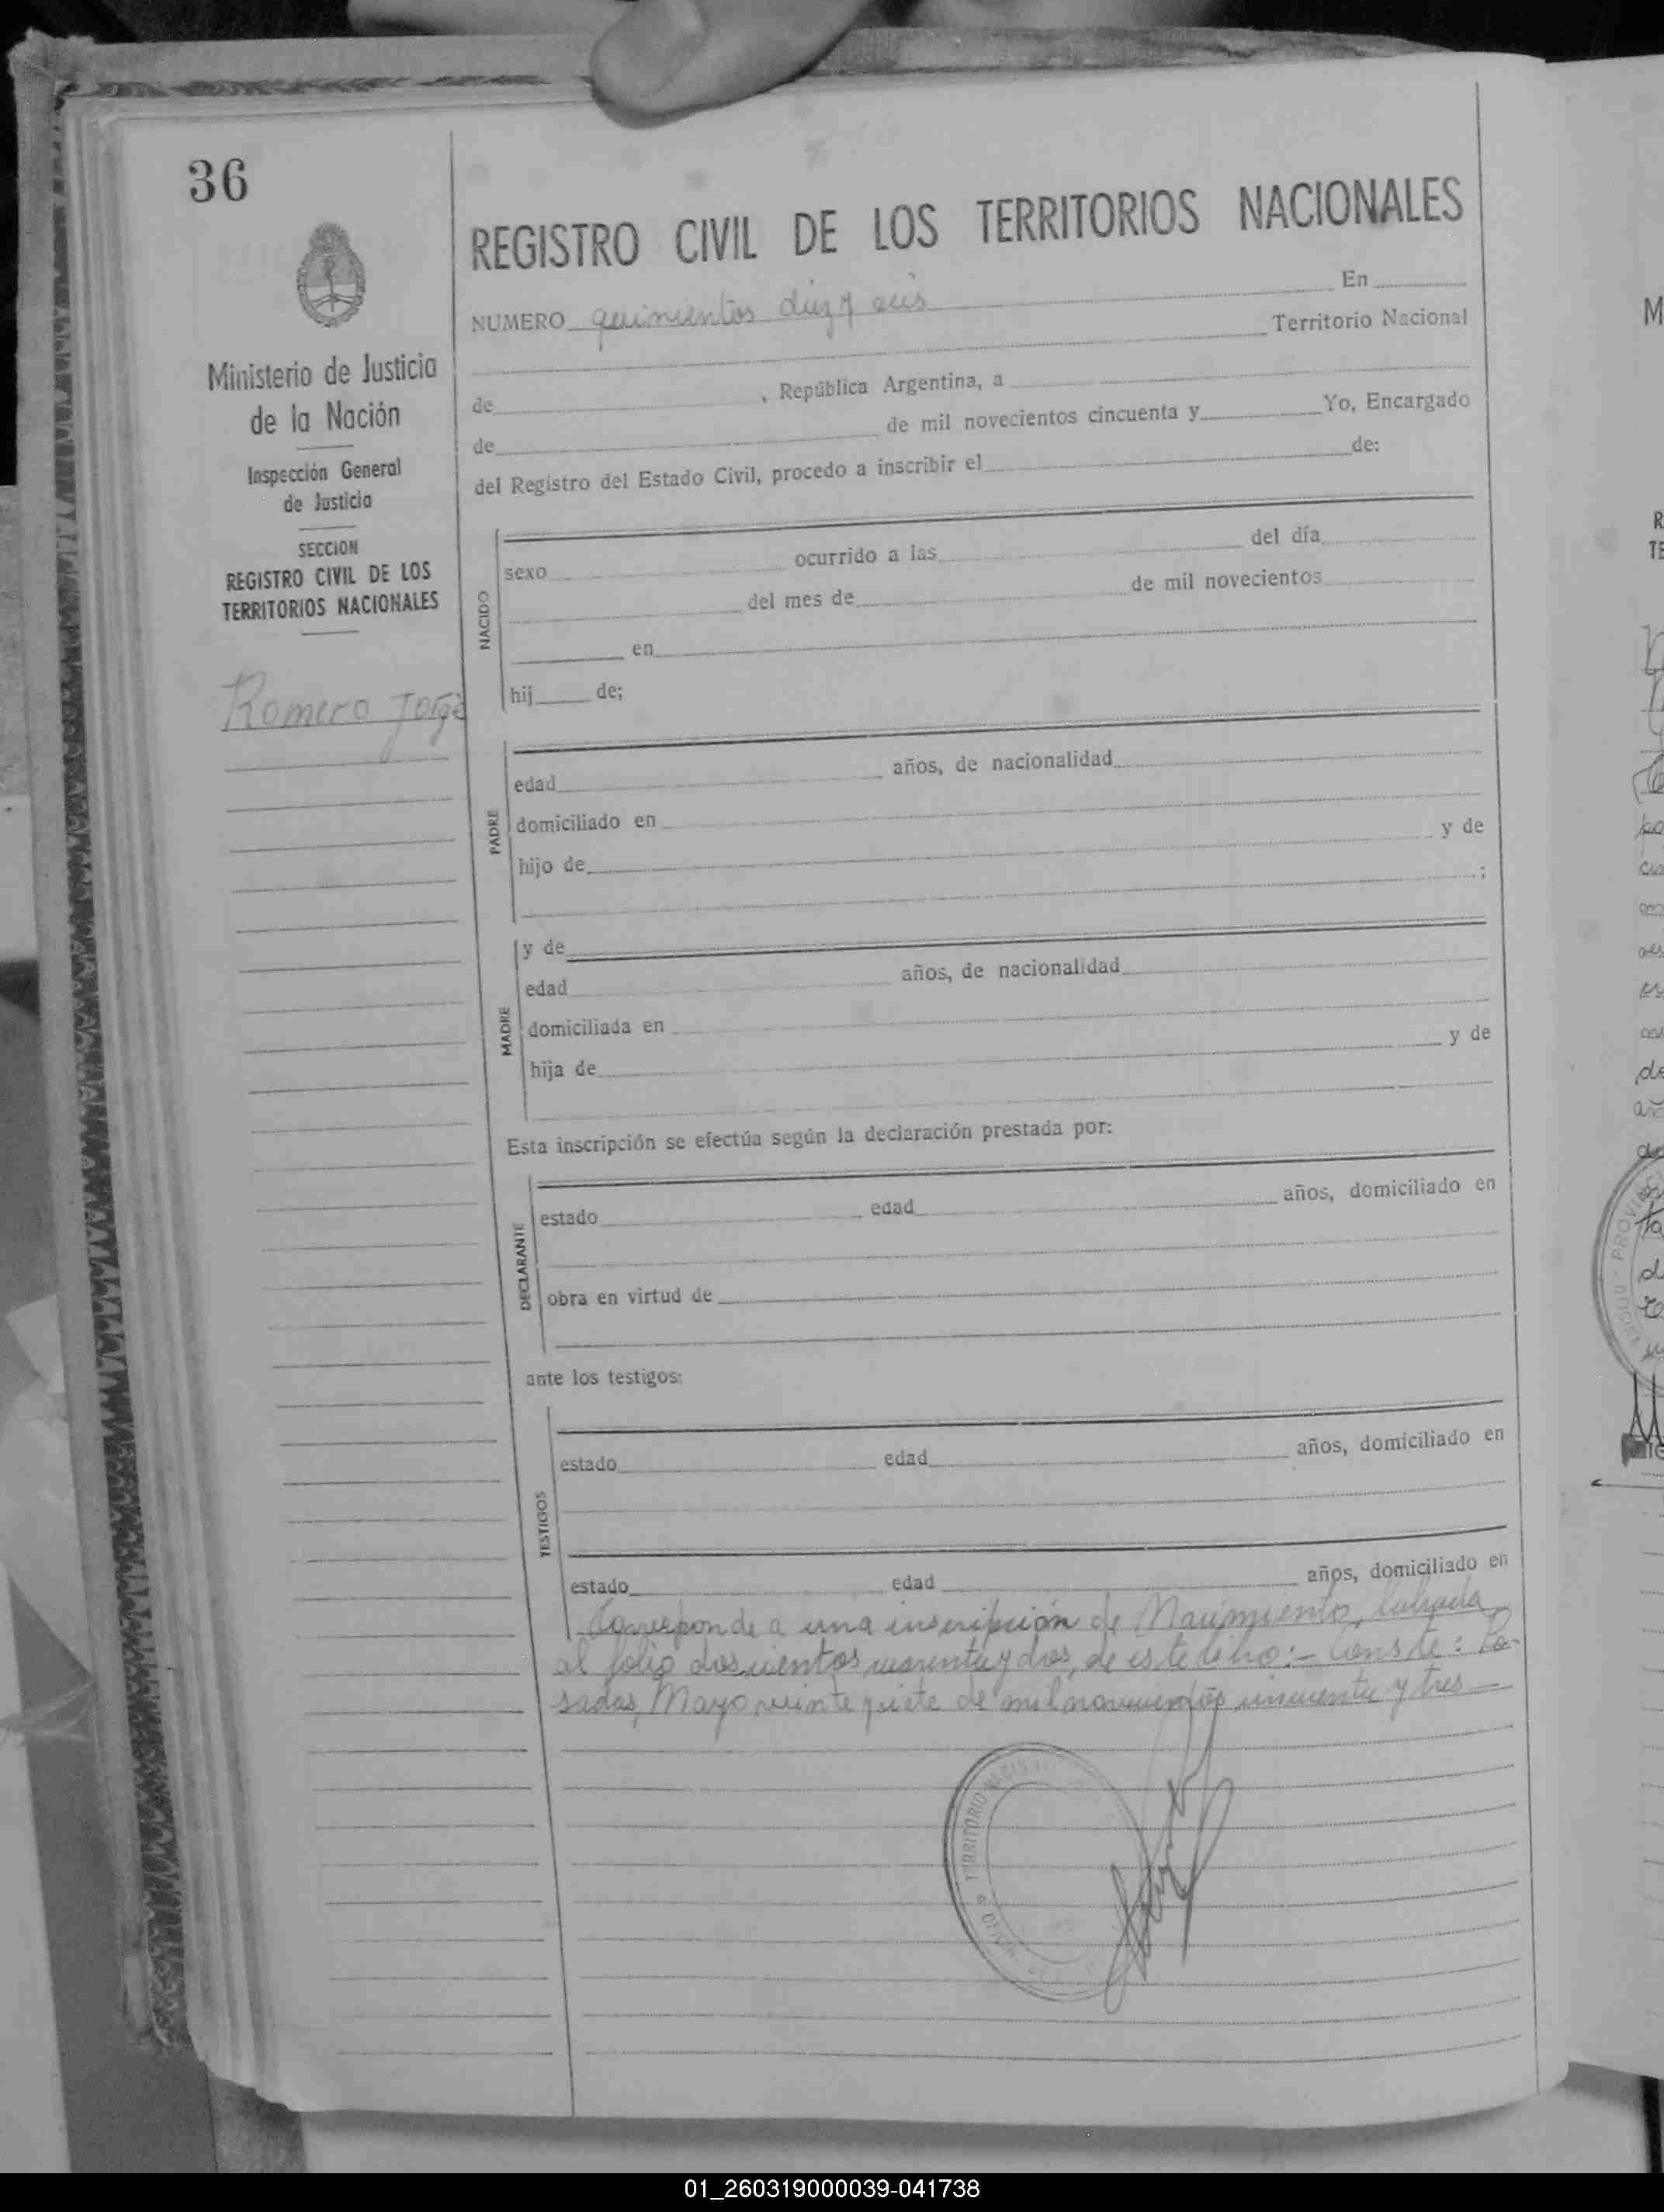 36
REGISTRO CIVIL DE LOS TERRITORIOS NACIONALES
NUMERO quinientos diez y seis En
Territorio Nacional
de , República Argentina, a
de de mil novecientos cincuenta y Yo, Encargado
del Registro del Estado Civil, procedo a inscribir el de:
Ministerio de Justicia
de la Nación
Inspección General
de Justicia
SECCION
REGISTRO CIVIL DE LOS
TERRITORIOS NACIONALES
Romero Jorge
NACIDO
sexo ocurrido a las del día
del mes de de mil novecientos
en
hij de;
PADRE
edad años, de nacionalidad
domiciliado en
hijo de y de
;
MADRE
y de
edad años, de nacionalidad
domiciliada en
hija de y de
Esta inscripción se efectúa según la declaración prestada por:
DECLARANTE
estado edad años, domiciliado en
obra en virtud de
ante los testigos:
TESTIGOS
estado edad años, domiciliado en
estado edad años, domiciliado en
Corresponde a una inscripción de Nacimiento, labrada
al folio doscientos cuarenta y dos, de este libro:- Conste: Po-
sadas, Mayo veinte siete de mil novecientos cincuenta y tres
TERRITORIO
01_260319000039-041738